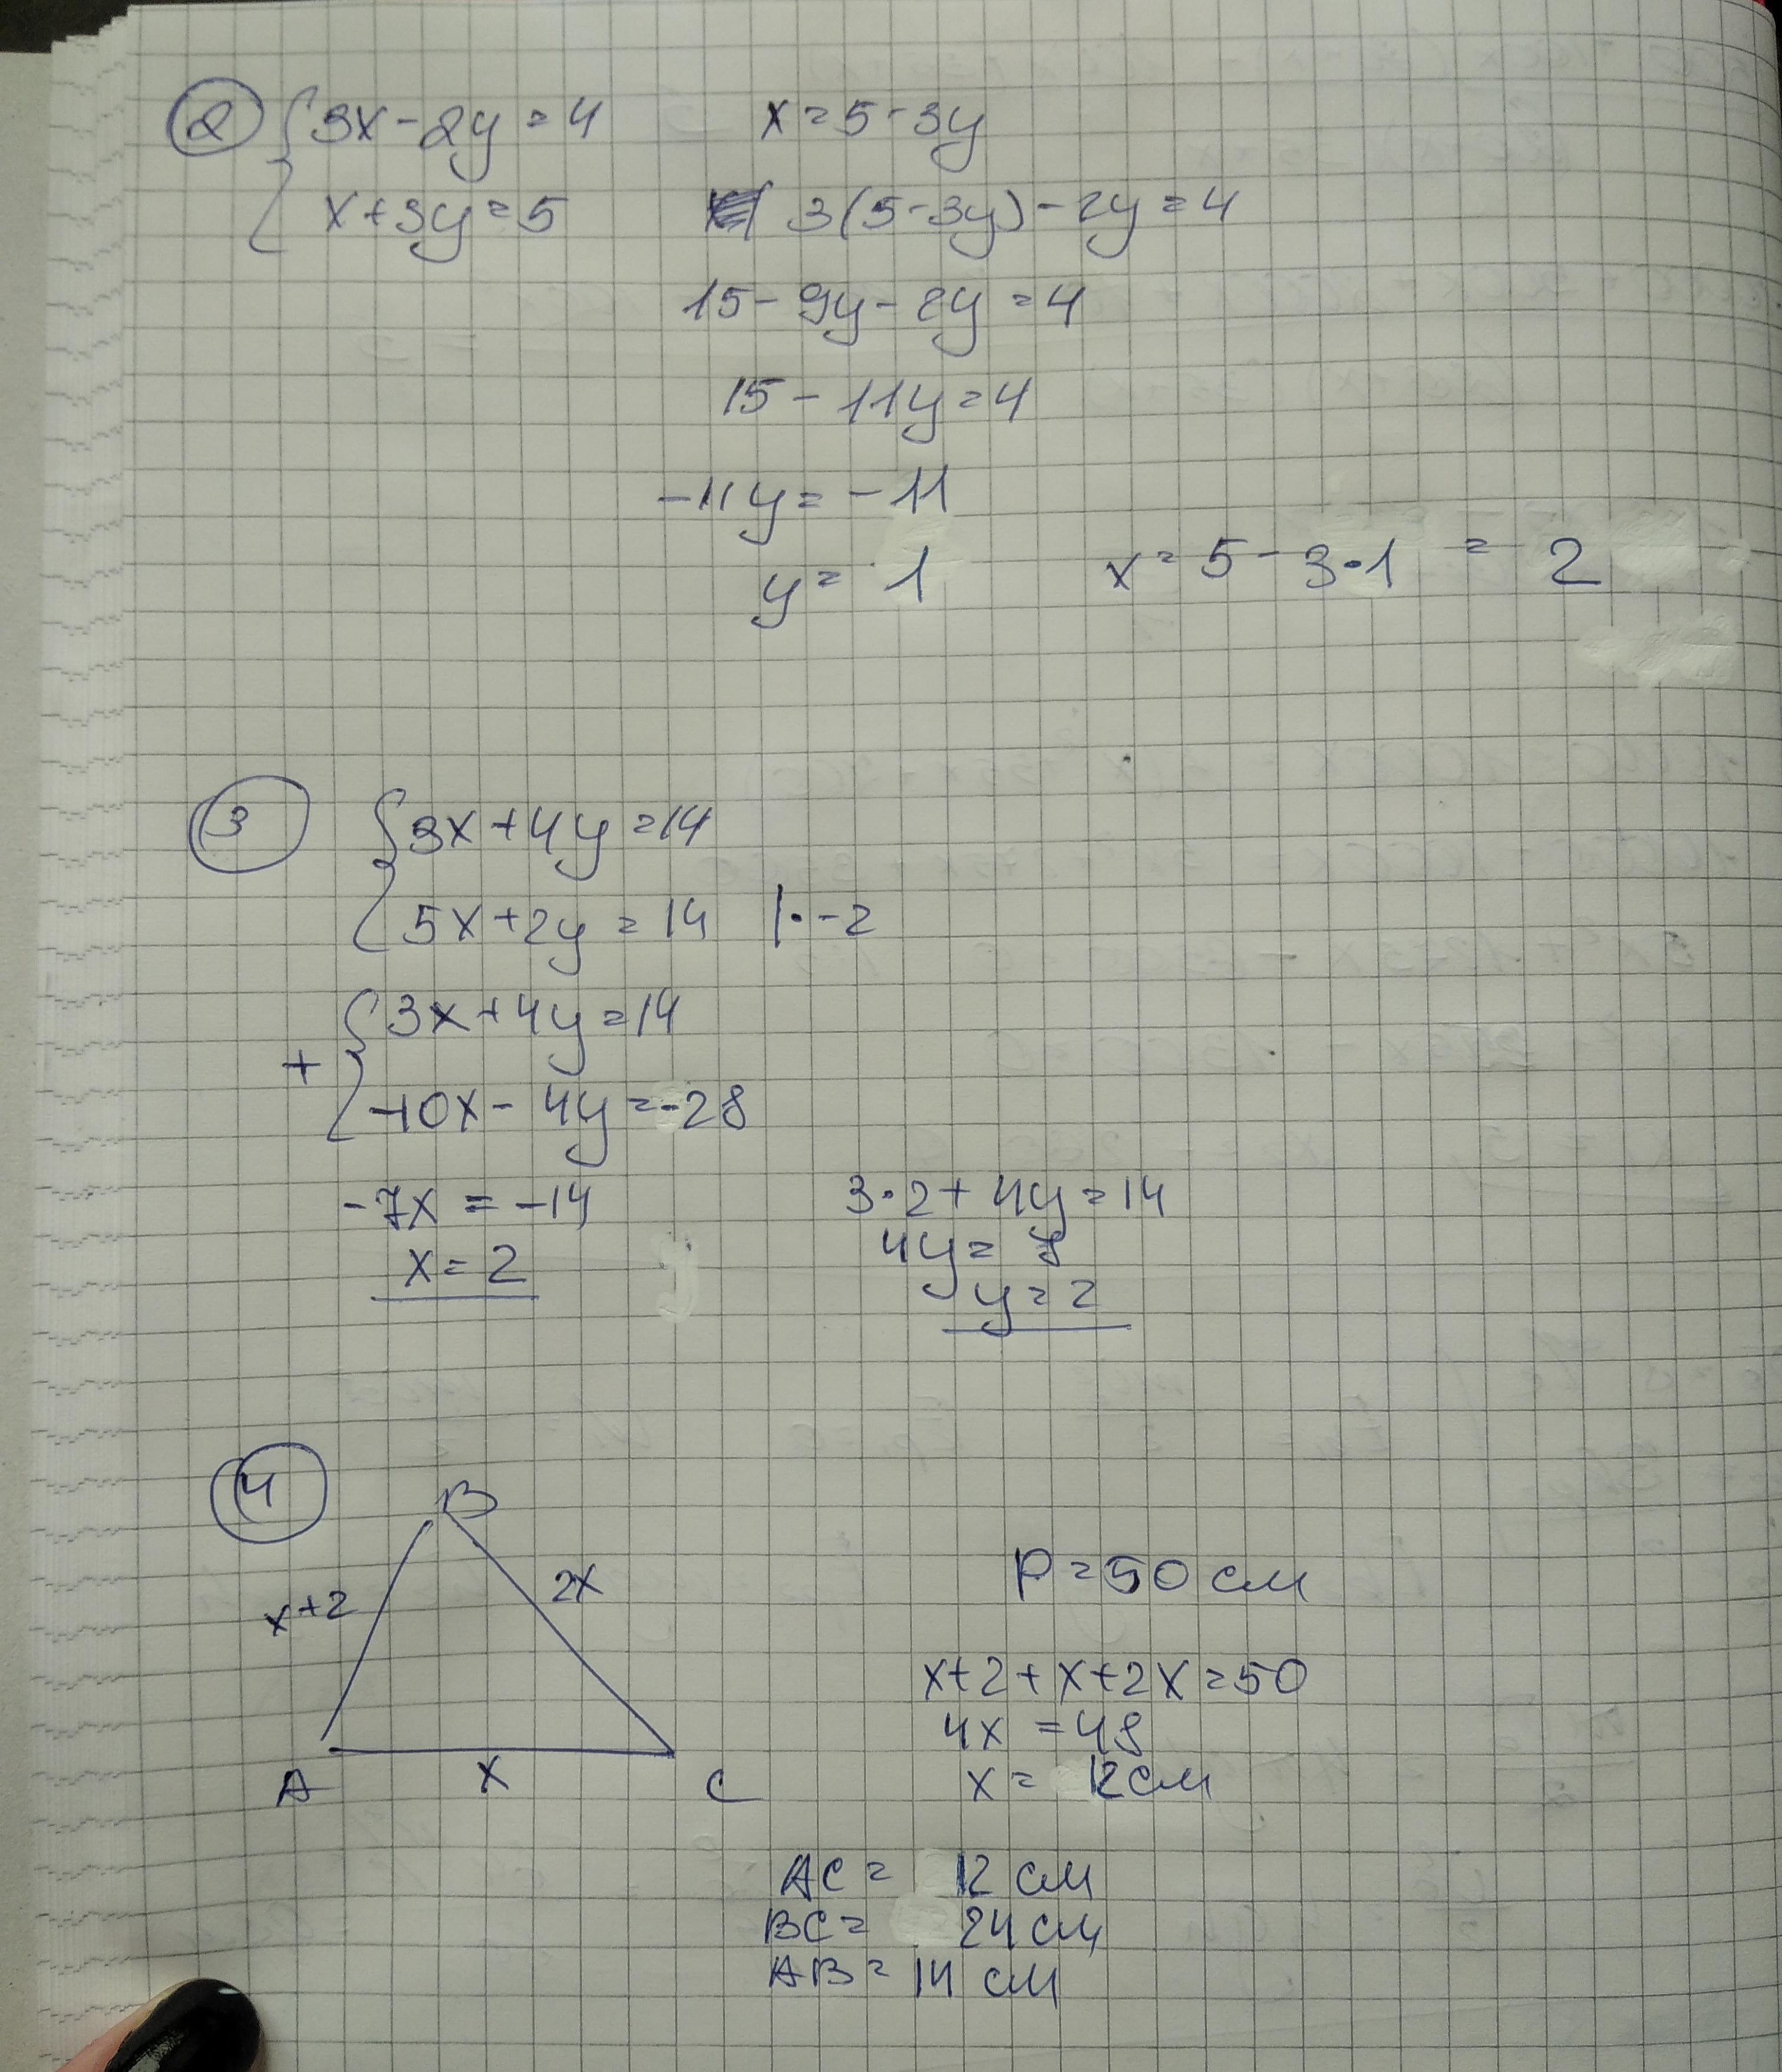 2 { 3x-2y=4 x=5-3y
x+3y=5 3(5-3y)-2y=4
15-9y-2y=4
15-11y=4
-11y=-11
y=1 x=5-3·1=2
3 { 3x+4y=14
5x+2y=14 |·-2
+ { 3x+4y=14
-10x-4y=-28
-7x=-14 3·2+4y=14
x=2 4y=8
y=2
4
B
x+2 2x P=50 см
x+2+x+2x=50
4x=48
A x C x=12 см
AC=12 см
BC=24 см
AB=14 см